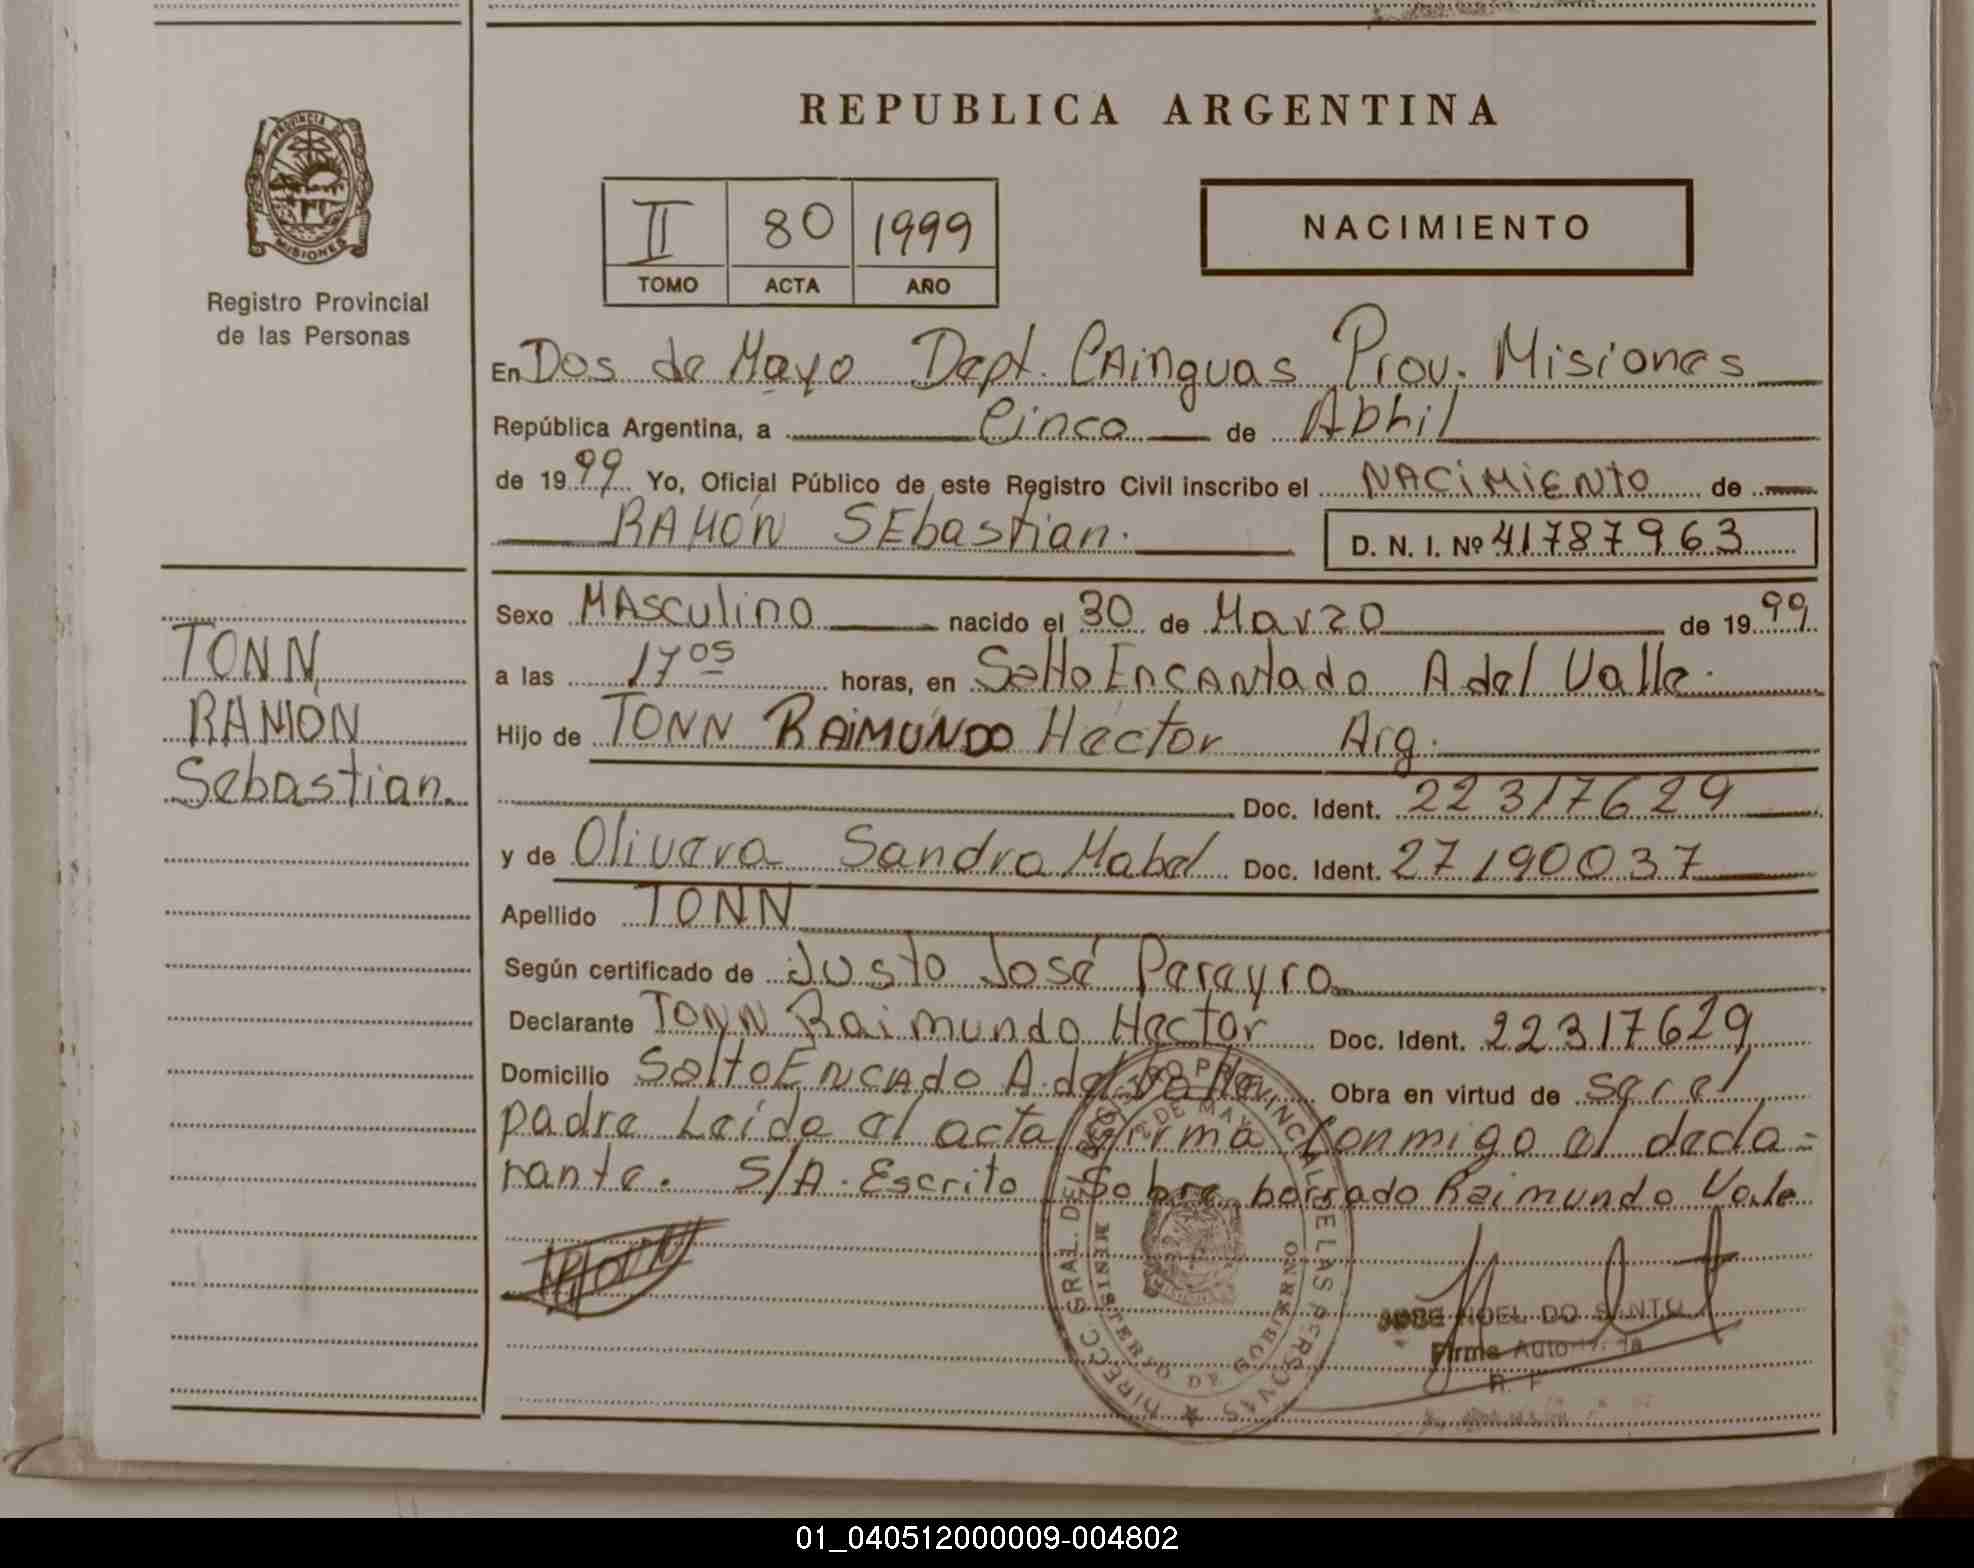 REPUBLICA ARGENTINA
PROVINCIA DE MISIONES
Registro Provincial
de las Personas
II 80 1999
TOMO ACTA AÑO
NACIMIENTO
En Dos de Mayo Dept. CAinguas Prov. Misiones
República Argentina, a Cinco de Abril
de 1999 Yo, Oficial Público de este Registro Civil inscribo el NACiMiENto de
RAMÓN SEbastian.
D. N. I. Nº 41787963
TONN
RAMON
Sebastian.
Sexo MAsculino nacido el 30 de Marzo de 1999
a las 17 05 horas, en Salto ENCANtado A del Valle.
Hijo de TONN RAiMUNDO Hector Arg.
Doc. Ident. 22317629
y de Olivera Sandra Mabel Doc. Ident. 27190037
Apellido TONN
Según certificado de Justo José Pereyra
Declarante TONN Raimundo Hector Doc. Ident. 22317629
Domicilio Salto ENCAdo A. del Valle, Obra en virtud de ser el
padre Leída el acta firma conmigo el decla-
rante. S/A. Escrito Sobre borrado Raimundo Vale
DIRECC GRAL. DEL REGISTRO PROVINCIAL DE LAS PERSONAS
2 DE MAYO
MINISTERIO DE GOBIERNO
JOSE NOEL DO SANTO
Firma Autorizada
01_040512000009-004802